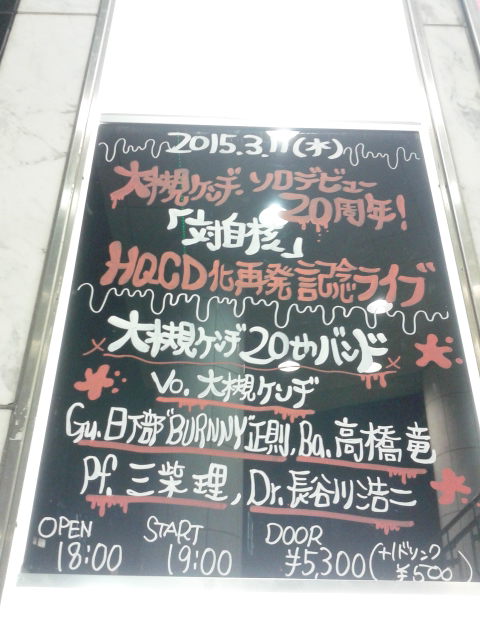 2015.3.11(水)
大槻ケンヂ ソロデビュー
20周年!
「対自核」
HQCD化再発記念ライブ
大槻ケンヂ20thバンド
Vo. 大槻ケンヂ
Gu. 日下部"BURNNY"正則, Ba. 高橋竜
Pf. 三柴理, Dr. 長谷川浩二
OPEN START DOOR
18:00 19:00 ¥5,300(+1ドリンク ¥500)